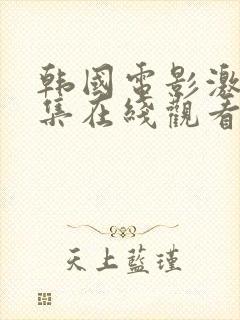 韩國電影激
集在綫觀看
天上藍瑾